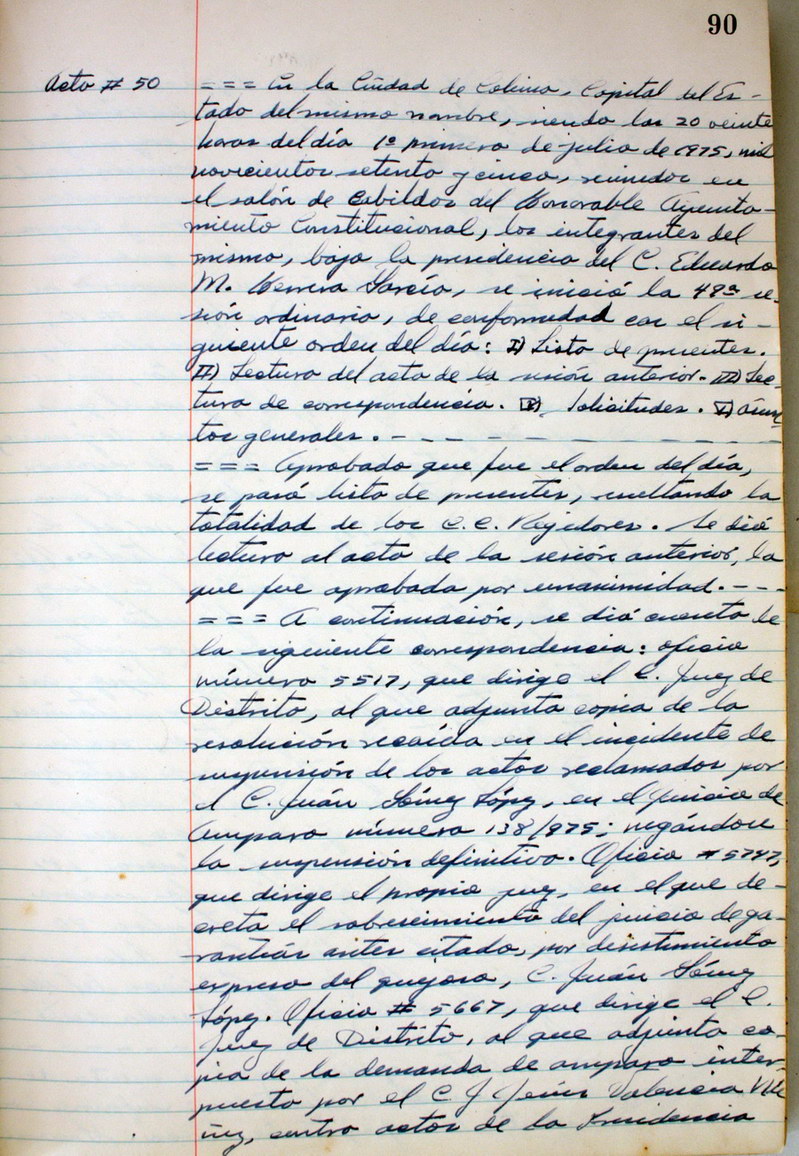 90
Acta # 50
= = = En la Ciudad de Colima, Capital del Es-
tado del mismo nombre, siendo las 20 veinte
horas del día 1º primero de julio de 1975, mil
novecientos setenta y cinco, reunidos en
el salón de Cabildos del Honorable Ayunta-
miento Constitucional, los integrantes del
mismo, bajo la presidencia del C. Eduardo
M. Herrera García, se inició la 49ª se-
sión ordinaria, de conformidad con el si-
guiente orden del día: I) Lista de presentes.
II) Lectura del acta de la sesión anterior. III) Lec-
tura de correspondencia. IV) Solicitudes. V) Asun-
tos generales. - - - - - - - -
= = = Aprobado que fue el orden del día,
se pasó lista de presentes, resultando la
totalidad de los C.C. Regidores. Se dió
lectura al acta de la sesión anterior, la
que fue aprobada por unanimidad. - - -
= = = A continuación, se dió cuenta de
la siguiente correspondencia: oficio
número 5517, que dirige el C. Juez de
Distrito, al que adjunta copia de la
resolución recaída en el incidente de
suspensión de los actos reclamados por
el C. Juán Gómez López, en el juicio de
Amparo número 138/975; negándose
la suspensión definitiva. Oficio # 5747,
que dirige el propio juez, en el que de-
creta el sobreseimiento del juicio de ga-
rantías antes citado, por desistimiento
expreso del quejoso, C. Juán Gómez
López. Oficio # 5667, que dirige el C.
Juez de Distrito, al que adjunta co-
pia de la demanda de amparo inter-
puesto por el C J Jesús Valencia Nú
ñez, contra actos de la Presidencia